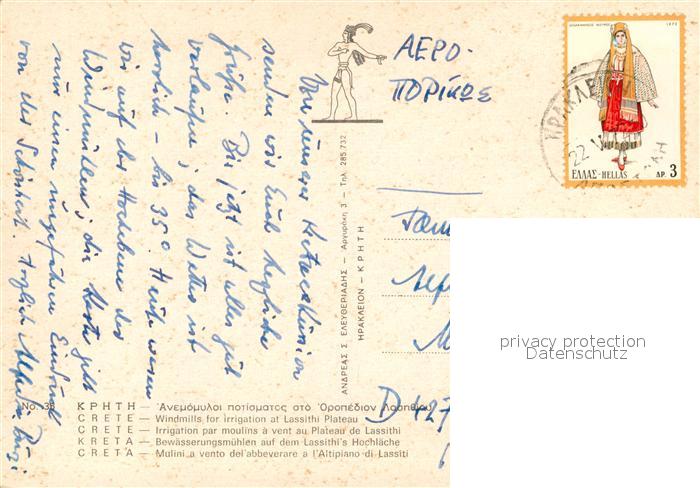 Von unserer Kretaexkursion
senden wir Euch herzliche
Grüße. Bis jetzt ist alles gut
verlaufen; das Wetter ist
herrlich – bis 35°. Heute waren
wir auf der Hochebene der
Windmühlen; die Karte gibt
nur einen ungefähren Eindruck
von der Schönheit. Herzlich
ΑΕΡΟ-
ΠΟΡΙΚΩΣ
1972
ΕΛΛΑΣ-HELLAS ΔΡ. 3
ΗΡΑΚΛΕΙ
22 V
ΑΝΔΡΕΑΣ Σ. ΕΛΕΥΘΕΡΙΑΔΗΣ — Αργυράκη 3 — Τηλ. 285.732
ΗΡΑΚΛΕΙΟΝ - ΚΡΗΤΗ
D 427
privacy protection
Datenschutz
No. 38 ΚΡΗΤΗ — Ἀνεμόμυλοι ποτίσματος στό Ὀροπέδιον Λασηθίου
CRETE — Windmills for irrigation at Lassithi Plateau
CRETE — Irrigation par moulins à vent au Plateau de Lassithi
KRETA — Bewässerungsmühlen auf dem Lassithi's Hochläche
CRETA — Mulini a vento del'abbeverare a l'Altipiano di Lassiti